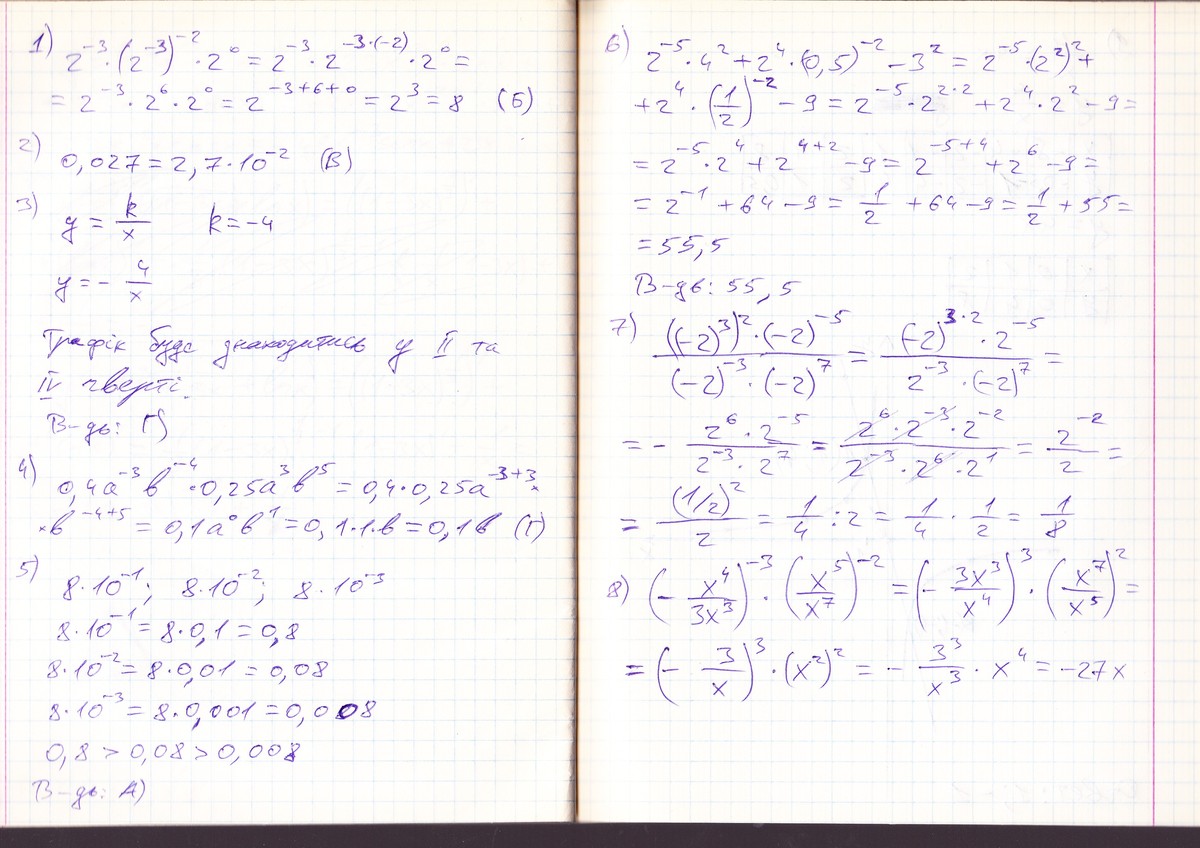 1) 2⁻³·(2⁻³)⁻²·2⁰ = 2⁻³·2⁻³·⁽⁻²⁾·2⁰ =
= 2⁻³·2⁶·2⁰ = 2⁻³⁺⁶⁺⁰ = 2³ = 8 (Б)
2) 0,027 = 2,7·10⁻² (В)
3) y = k/x k = -4
y = - 4/x
Графік буде знаходитись у II та
IV чверті.
В-дь: Г)
4) 0,4a⁻³b⁻⁴·0,25a³b⁵ = 0,4·0,25a⁻³⁺³×
×b⁻⁴⁺⁵ = 0,1a⁰b¹ = 0,1·1·b = 0,1b (Г)
5) 8·10⁻¹; 8·10⁻²; 8·10⁻³
8·10⁻¹ = 8·0,1 = 0,8
8·10⁻² = 8·0,01 = 0,08
8·10⁻³ = 8·0,001 = 0,008
0,8 > 0,08 > 0,008
В-дь: А)
6) 2⁻⁵·4² + 2⁴·(0,5)⁻² - 3² = 2⁻⁵·(2²)² +
+ 2⁴·(1/2)⁻² - 9 = 2⁻⁵·2²·² + 2⁴·2² - 9 =
= 2⁻⁵·2⁴ + 2⁴⁺² - 9 = 2⁻⁵⁺⁴ + 2⁶ - 9 =
= 2⁻¹ + 64 - 9 = 1/2 + 64 - 9 = 1/2 + 55 =
= 55,5
В-дь: 55,5
7) ((-2)³)²·(-2)⁻⁵ / (-2)⁻³·(-2)⁷ = (-2)³·²·2⁻⁵ / 2⁻³·(-2)⁷ =
= - 2⁶·2⁻⁵ / 2⁻³·2⁷ = 2⁶·2⁻³·2⁻² / 2⁻³·2⁶·2¹ = 2⁻² / 2 =
= (1/2)² / 2 = 1/4 : 2 = 1/4 · 1/2 = 1/8
8) (- x⁴/3x³)⁻³·(x⁵/x⁷)⁻² = (- 3x³/x⁴)³·(x⁷/x⁵)² =
= (- 3/x)³·(x²)² = - 3³/x³ · x⁴ = -27x